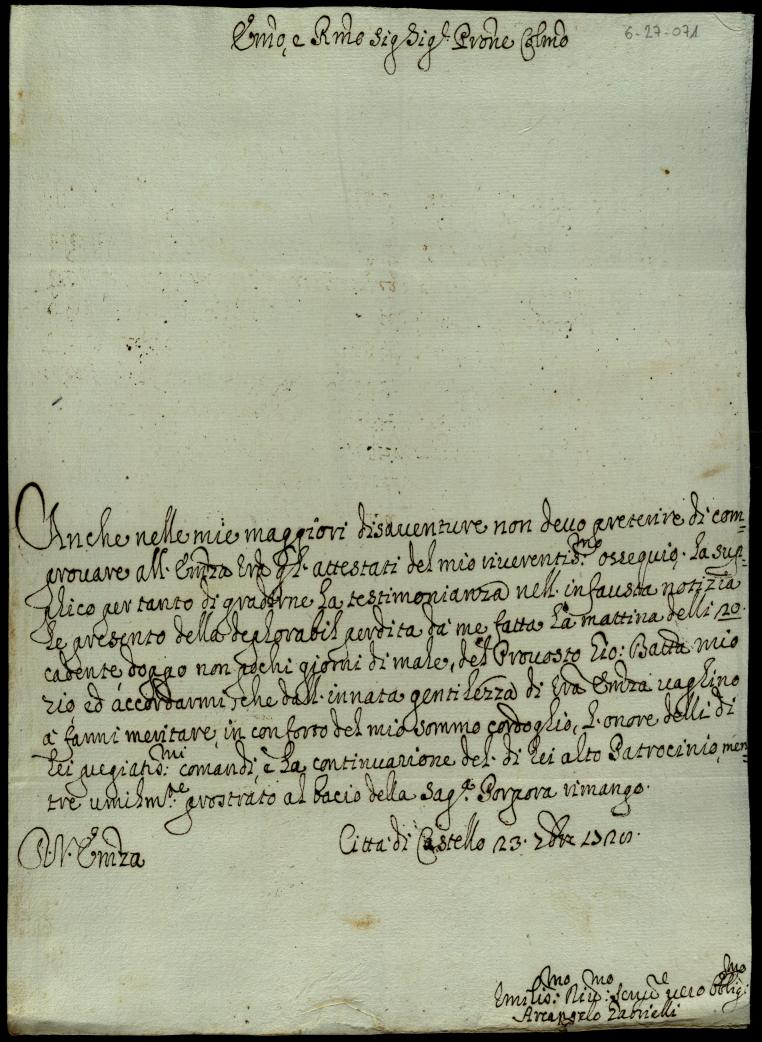 Emo, e Rmo Sig Sigr. Prone Colmo
6-27-071
Anche nelle mie maggiori disaventure non devo preterire di com=
provare all' Emza Vra gl' attestati del mio riverentismo ossequio. La sup=
plico per tanto di gradirne la testimonianza nell' infausta notizia
Le presento della deplorabil perdita da me fatta la mattina delli 20.
cadente doppo non pochi giorni di male, del Provosto Gio: Batta mio
zio, ed accordarmi, che dall' innata gentilezza di Vra Emza vaglino
a' farmi meritare, in conforto del mio sommo cordoglio, l' onore delli di
Lei pregiatismi comandi, e la continuazione del di Lei alto Patrocinio, men=
tre umilmte prostrato al bacio della Sagra Porpora rimango.
Di V. Emza
Citta di Castello 23.
Emilismo: Rivmo: Servre vero Obbligmo:
Arcangelo Gabrielli